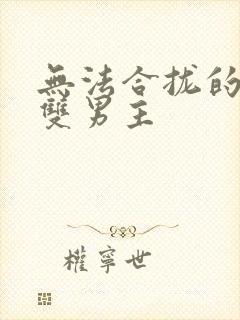 無法合拢的
雙男主
權寧世